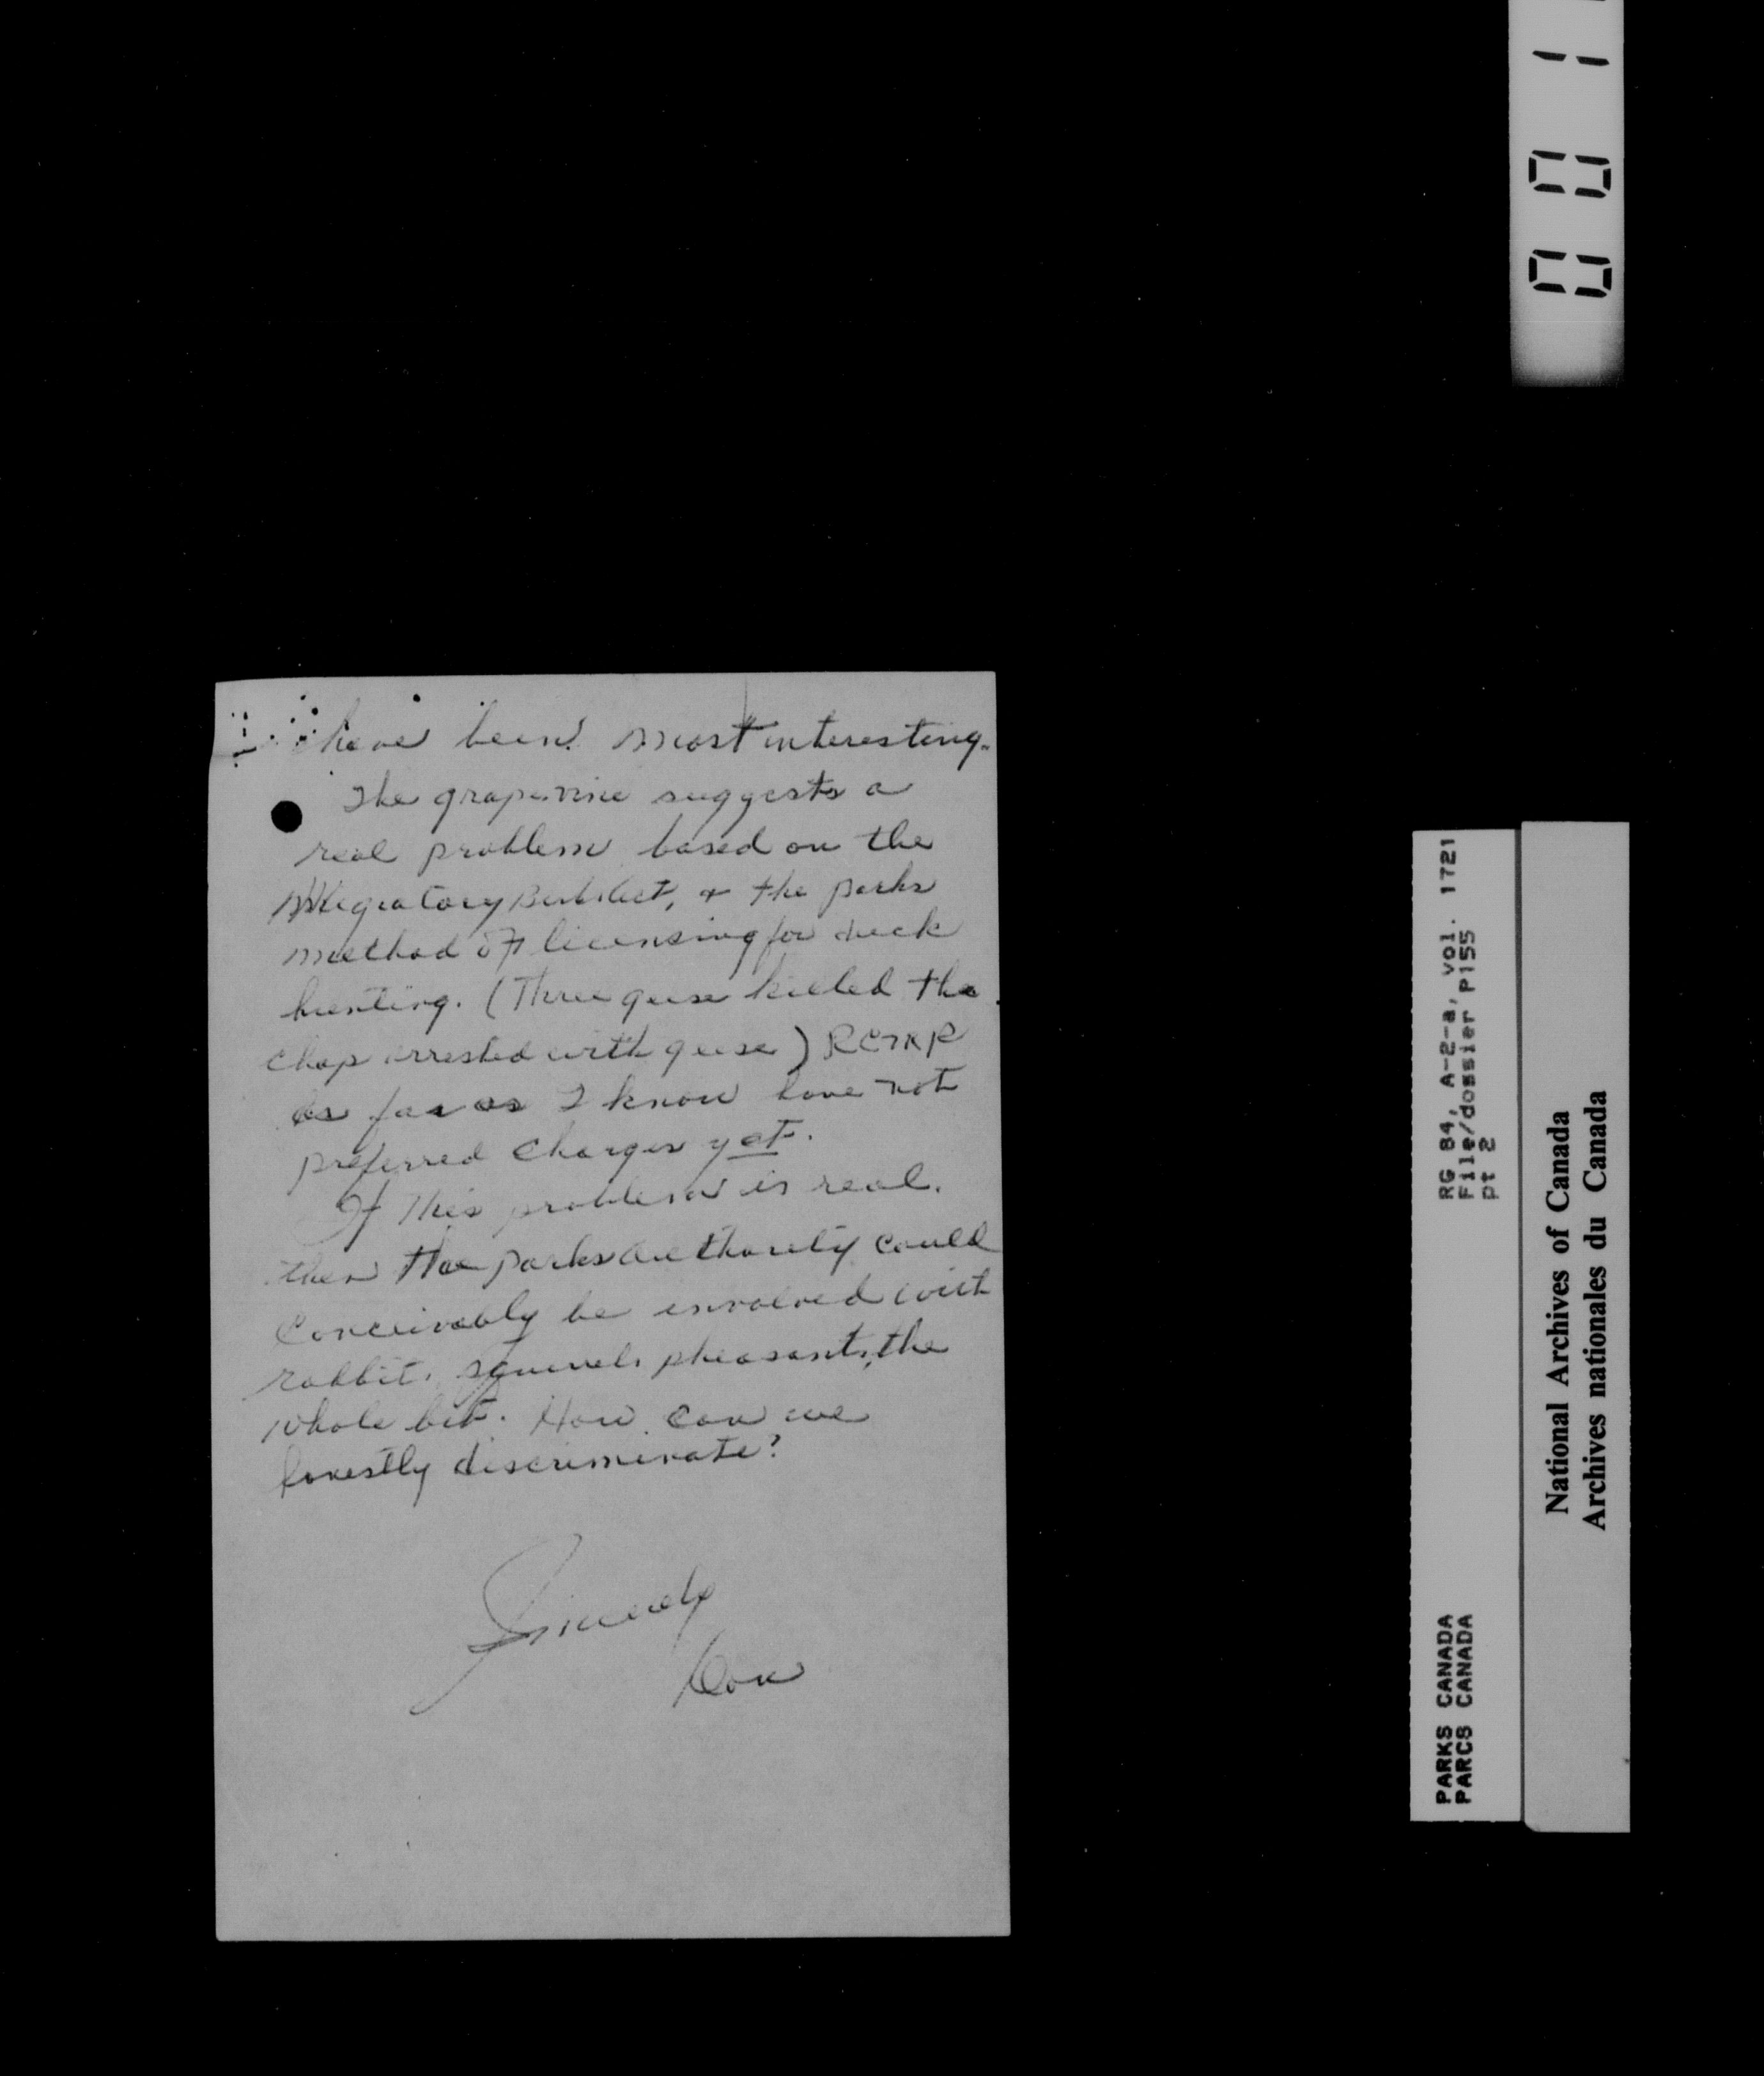 have been most interesting.
The grapevine suggests a
real problem based on the
Migratory Bird Act, & the parks
method of licensing for duck
hunting. (Three geese killed the
chap arrested with geese) RCMP
as far as I know have not
preferred charges yet.
If this problem is real.
then the parks authority could
conceivably be involved with
rabbits, squirrels, pheasants, the
whole bit. How can we
honestly discriminate?
Sincerely
Don
001
RG 84, A-2-a, vol. 1721
File/dossier P155
pt 2
PARKS CANADA
PARCS CANADA
National Archives of Canada
Archives nationales du Canada